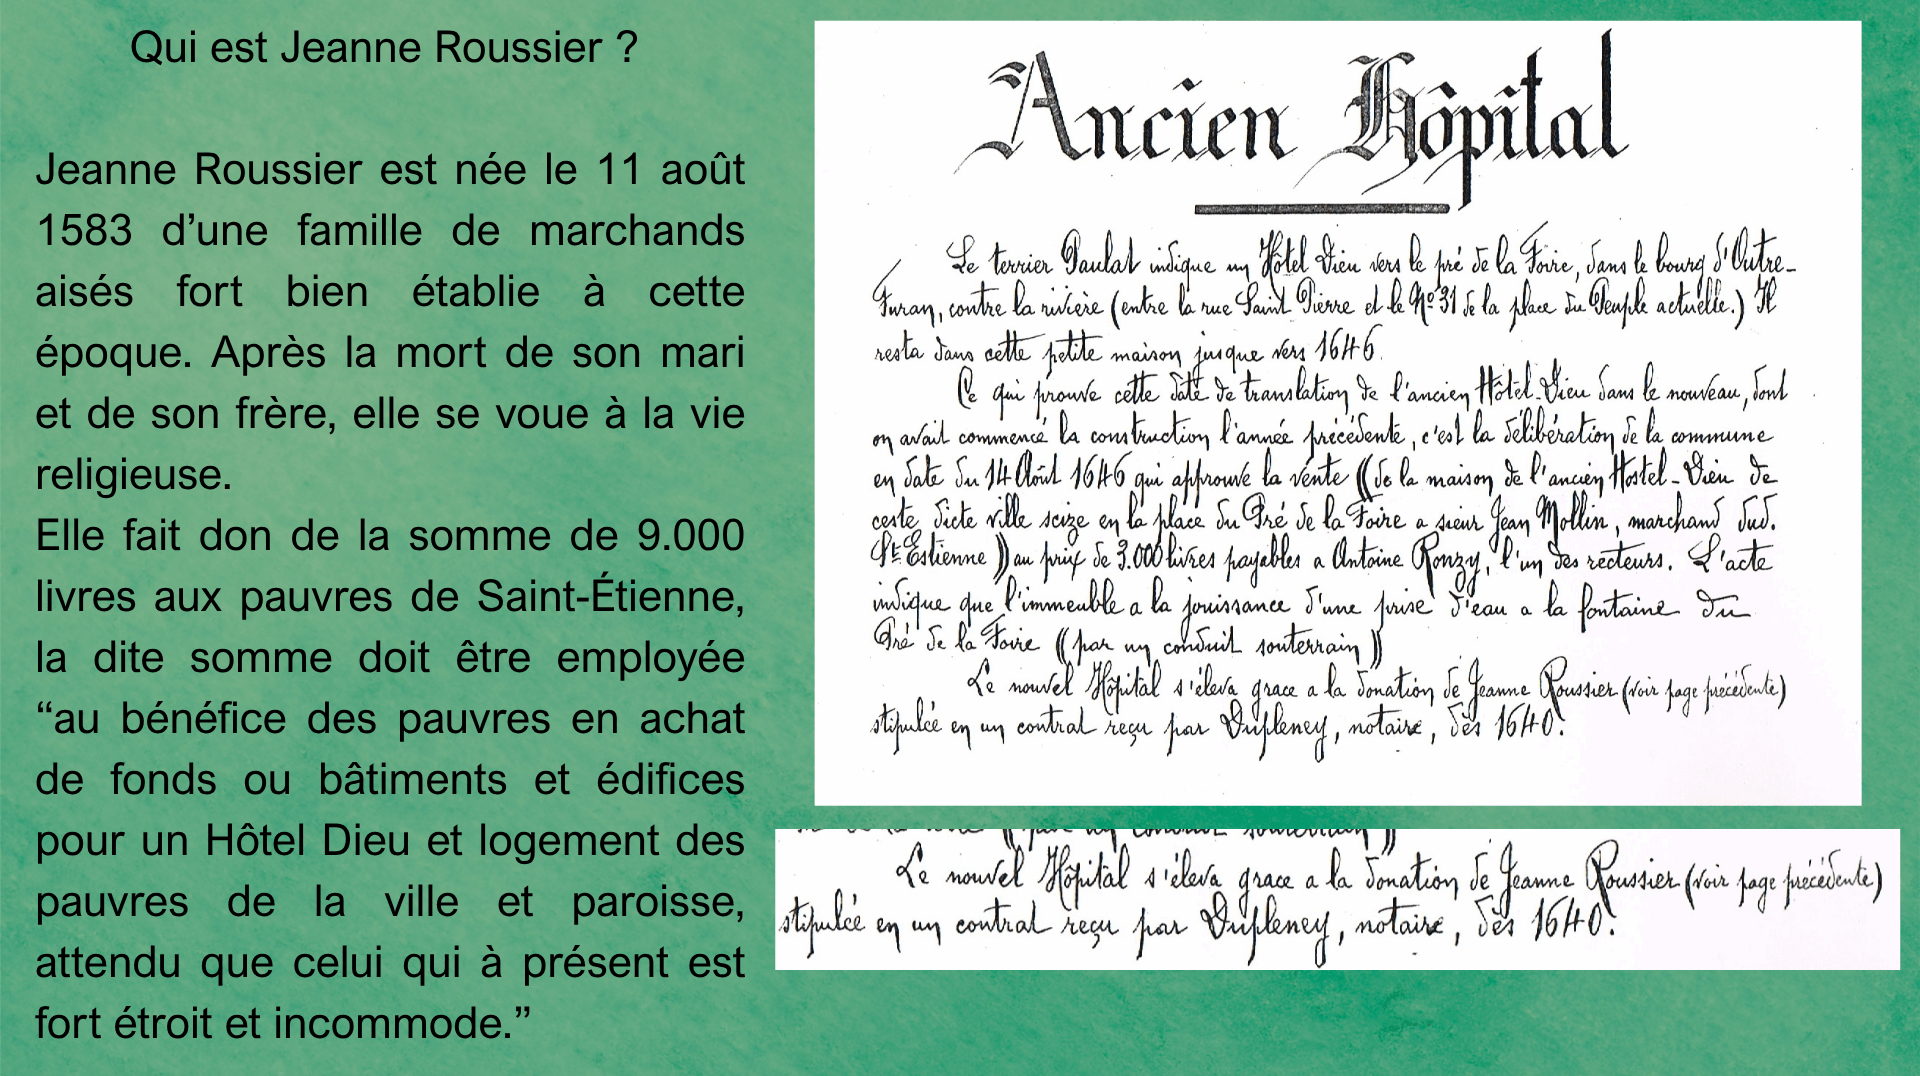 Qui est Jeanne Roussier ?
Jeanne Roussier est née le 11 août
1583 d’une famille de marchands
aisés fort bien établie à cette
époque. Après la mort de son mari
et de son frère, elle se voue à la vie
religieuse.
Elle fait don de la somme de 9.000
livres aux pauvres de Saint-Étienne,
la dite somme doit être employée
“au bénéfice des pauvres en achat
de fonds ou bâtiments et édifices
pour un Hôtel Dieu et logement des
pauvres de la ville et paroisse,
attendu que celui qui à présent est
fort étroit et incommode.”
Ancien Hôpital
Le terrier Paulat indique un Hôtel Dieu vers le pré de la Foire, dans le bourg d'Outre-
Furan, contre la rivière (entre la rue Saint Pierre et le Nº 31 de la place du Peuple actuelle.) Il
resta dans cette petite maison jusque vers 1646.
Ce qui prouve cette date de translation de l'ancien Hôtel-Dieu dans le nouveau, dont
on avait commencé la construction l'année précédente, c'est la délibération de la commune
en date du 14 Août 1646 qui approuve la vente ((de la maison de l'ancien Hostel-Dieu de
ceste dicte ville scize en la place du Pré de la Foire a sieur Jean Mollin, marchand dud.
St Estienne)) au prix de 3.000 livres payables a Antoine Ronzy, l'un des recteurs. L'acte
indique que l'immeuble a la jouissance d'une prise d'eau a la fontaine du
Pré de la Foire ((par un conduit souterrain))
Le nouvel Hôpital s'éleva grace a la donation de Jeanne Roussier (voir page précédente)
stipulée en un contrat reçu par Dupleney, notaire, dès 1640.
de la Foire ((par un conduit souterrain))
Le nouvel Hôpital s'éleva grace a la donation de Jeanne Roussier (voir page précédente)
stipulée en un contrat reçu par Dupleney, notaire, dès 1640.